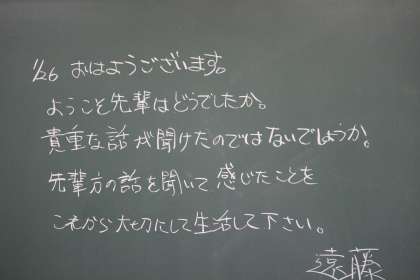 1/26 おはようございます。
ようこそ先輩はどうでしたか。
貴重な話が聞けたのではないでしょうか。
先輩方の話を聞いて感じたことを
これから大切にして生活して下さい。
遠藤